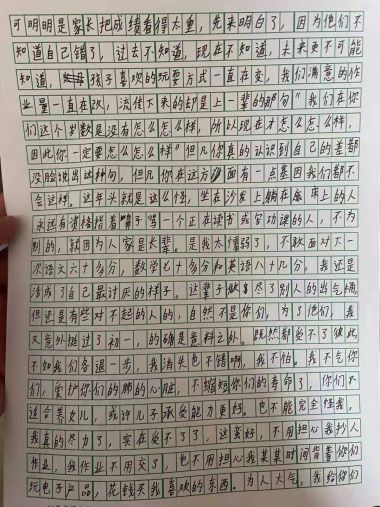 可明明是家长把成绩看得太重，先来明白了，因为他们不
知道自己错了，过去不知道，现在不知道，未来更不可能
知道，孩子喜欢的玩耍方式一直在变，我们满意的作
业量一直在改，流传下来的却是上一辈的那句“我们在你
们这个岁数是没有怎么怎么样，所以现在才怎么怎么样，
因此你一定要怎么怎么样”但凡你真的认识到自己的差都
没脸说出这种句，但凡你在这方面有一点基因我们都不
会这样。这年头就是这么怪，坐在沙发上躺在床上的人
永远有资格指着骂一个正在读书或写功课的人，不为
别的，就因为人家是长辈。是我太懦弱了，不敢面对下一
次语文六十多分，数学七十多分和英语八十几分，我还是
活成了自己最讨厌的样子。这辈子做尽了别人的出气桶
但还是有些对不起的人的，自然不是你们，为了他们，我
又意外挺过了初一，的确是意料之外。既然都受不了彼此，
不如我们各退一步，我消失也不错啊，我不怕。我不气你
们，爱护你们的肺的心脏，不缩短你们的寿命了，你们不
适合养女儿，或许儿子承受能力更好。也不能完全怪我，
我真的尽力了，实在受不了了，这蛮好，不用担心我抄人
作业，我作业不用交了，也不用担心我某某时间背着你们
玩电子产品，花钱买我喜欢的东西。为人大气，我给你们